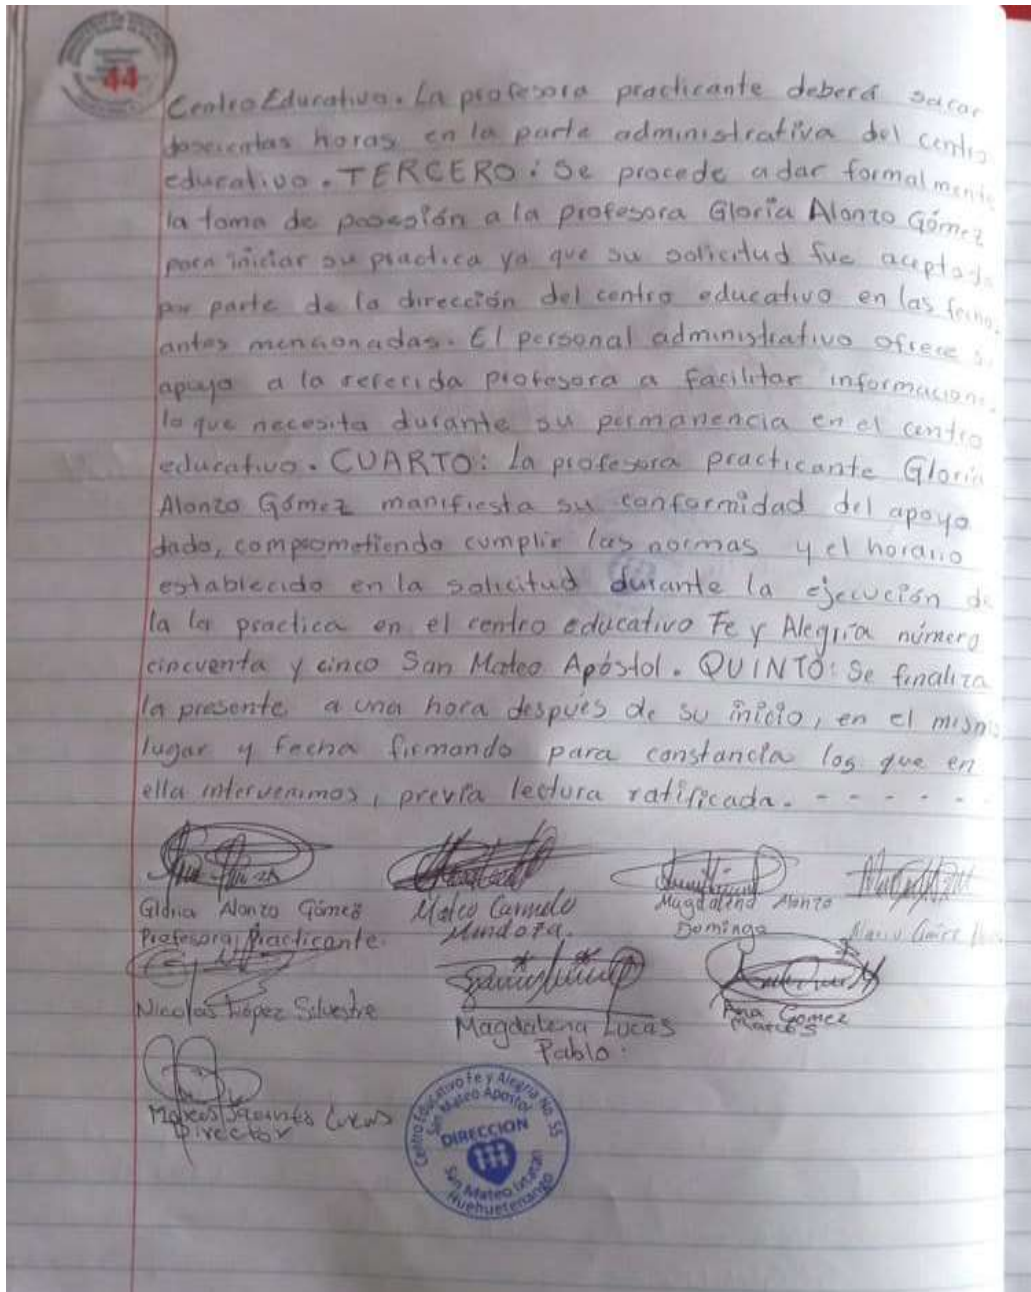 44
Centro Educativo. La profesora practicante deberá sacar
doscientas horas en la parte administrativa del centro
educativo. TERCERO: Se procede a dar formalmente
la toma de posesión a la profesora Gloria Alonzo Gómez
para iniciar su practica ya que su solicitud fue aceptada
por parte de la dirección del centro educativo en las fechas
antes mencionadas. El personal administrativo ofrece su
apoyo a la referida profesora a facilitar informaciones
lo que necesita durante su permanencia en el centro
educativo. CUARTO: La profesora practicante Gloria
Alonzo Gómez manifiesta su conformidad del apoyo
dado, comprometiendo cumplir las normas y el horario
establecido en la solicitud durante la ejecución de
la la practica en el centro educativo Fe y Alegría número
cincuenta y cinco San Mateo Apóstol. QUINTO: Se finaliza
la presente a una hora después de su inicio, en el mismo
lugar y fecha firmando para constancia los que en
ella intervenimos, previa lectura ratificada. - - - - - -
Gloria Alonzo Gómez
Profesora Practicante.
Mateo Carmelo
Mendoza.
Magdalena Alonzo
Domingo
Nicolas López Silvestre
Magdalena Lucas
Pablo.
Ana Gomez
Marcos
Lucas
Director
Centro Educativo Fe y Alegría No. 55
San Mateo Apóstol
DIRECCION
San Mateo Ixtatán
Huehuetenango